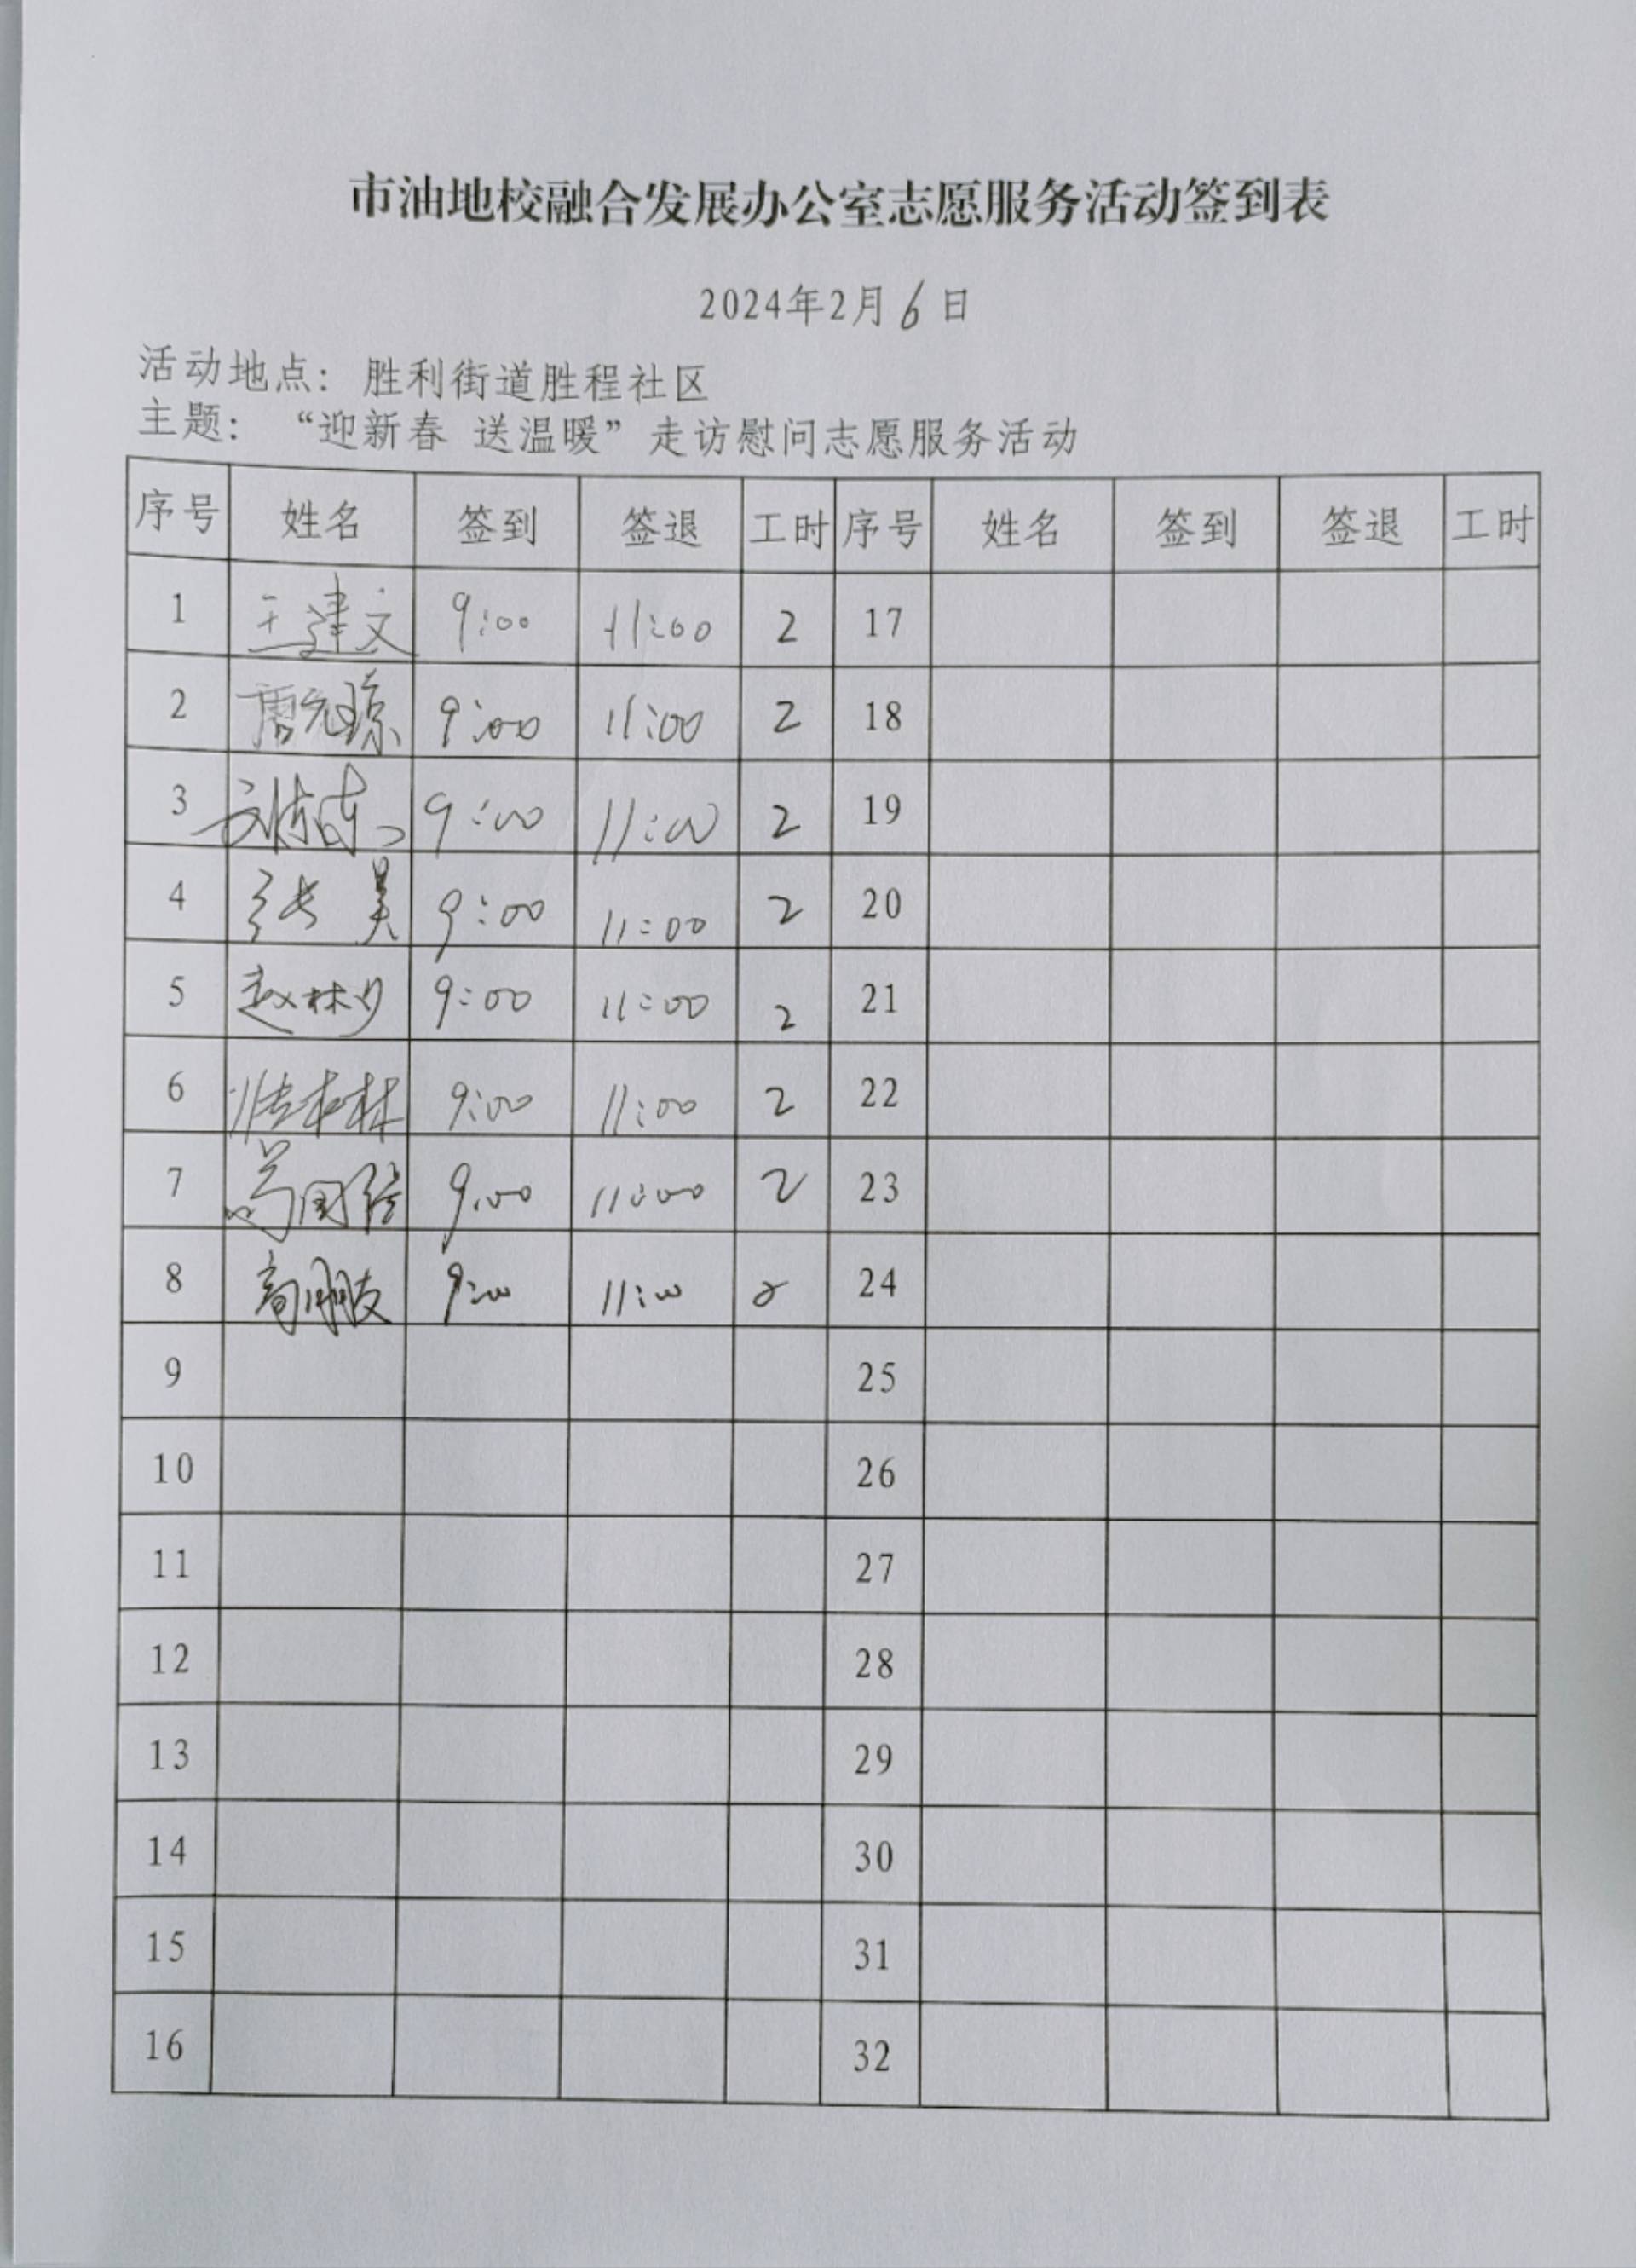 市油地校融合发展办公室志愿服务活动签到表
2024年2月6日
活动地点：胜利街道胜程社区
主题：“迎新春 送温暖”走访慰问志愿服务活动
序号 姓名 签到 签退 工时 序号 姓名 签到 签退 工时
1 王建文 9:00 11:00 2 17
2 9:00 11:00 2 18
3 9:00 11:00 2 19
4 张美 9:00 11:00 2 20
5 9:00 11:00 2 21
6 9:00 11:00 2 22
7 9:00 11:00 2 23
8 9:00 11:00 2 24
9 25
10 26
11 27
12 28
13 29
14 30
15 31
16 32